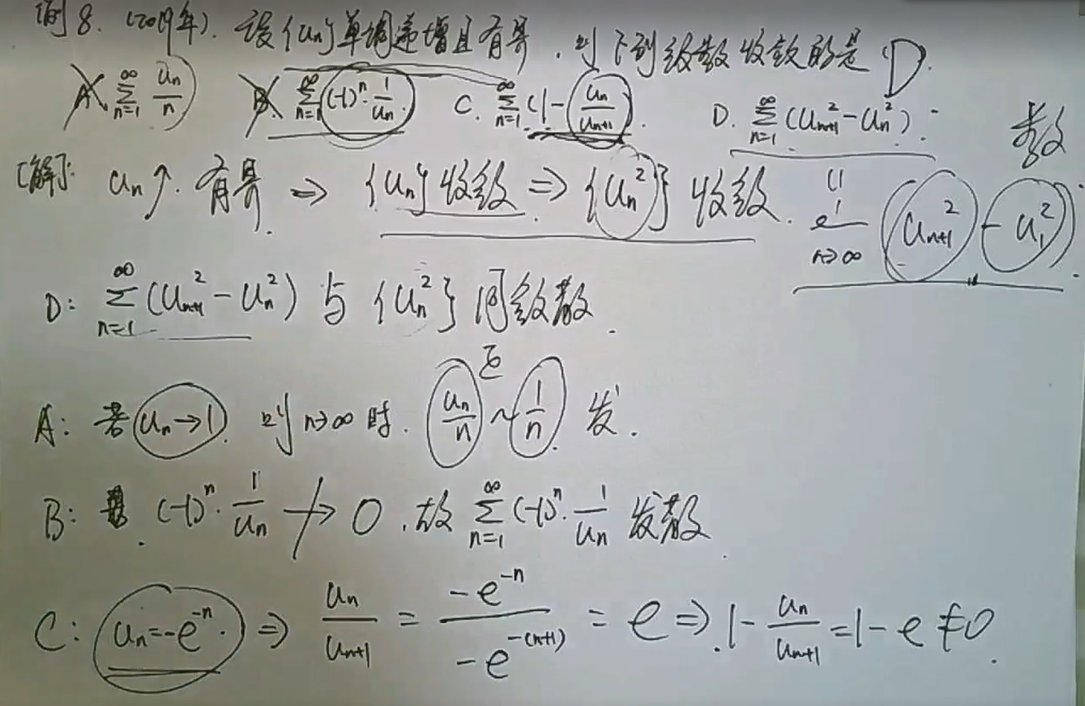 例8. (2019年). 设{un}单调递增且有界, 则下列级数收敛的是 D.
A. ∑_{n=1}^{∞} un/n B. ∑_{n=1}^{∞} (-1)^n · 1/un C. ∑_{n=1}^{∞} (1 - un/un+1). D. ∑_{n=1}^{∞} (un+1² - un²).
散
[解]: un↑. 有界 ⇒ {un}收敛 ⇒ {un²}收敛. lim_{n→∞} (un+1² - u1²).
D: ∑_{n=1}^{∞} (un+1² - un²) 与 {un²} 同敛散.
正
A: 若 un→1. 则 n→∞ 时. un/n ~ 1/n 发.
B: (-1)^n · 1/un ↛ 0. 故 ∑_{n=1}^{∞} (-1)^n · 1/un 发散.
C: un = -e^{-n}. ⇒ un/un+1 = -e^{-n}/-e^{-(n+1)} = e ⇒ 1 - un/un+1 = 1 - e ≠ 0.